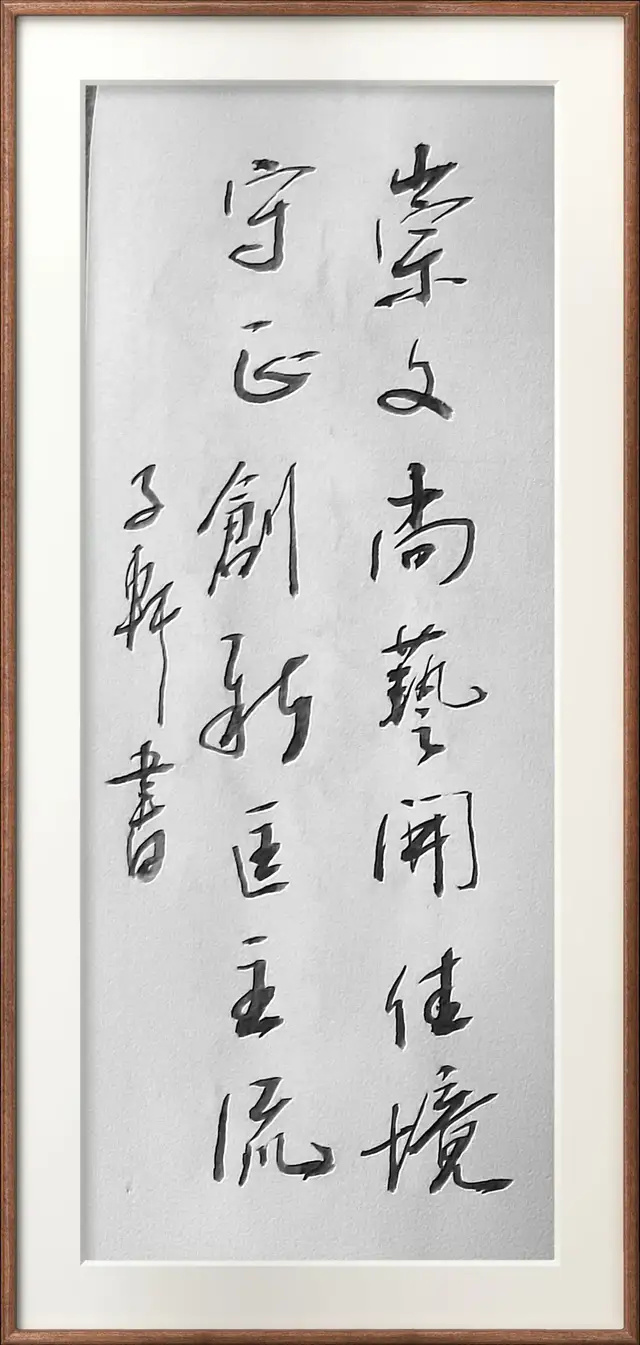 崇文尚藝開佳境
守正創新匡主流
子軒書